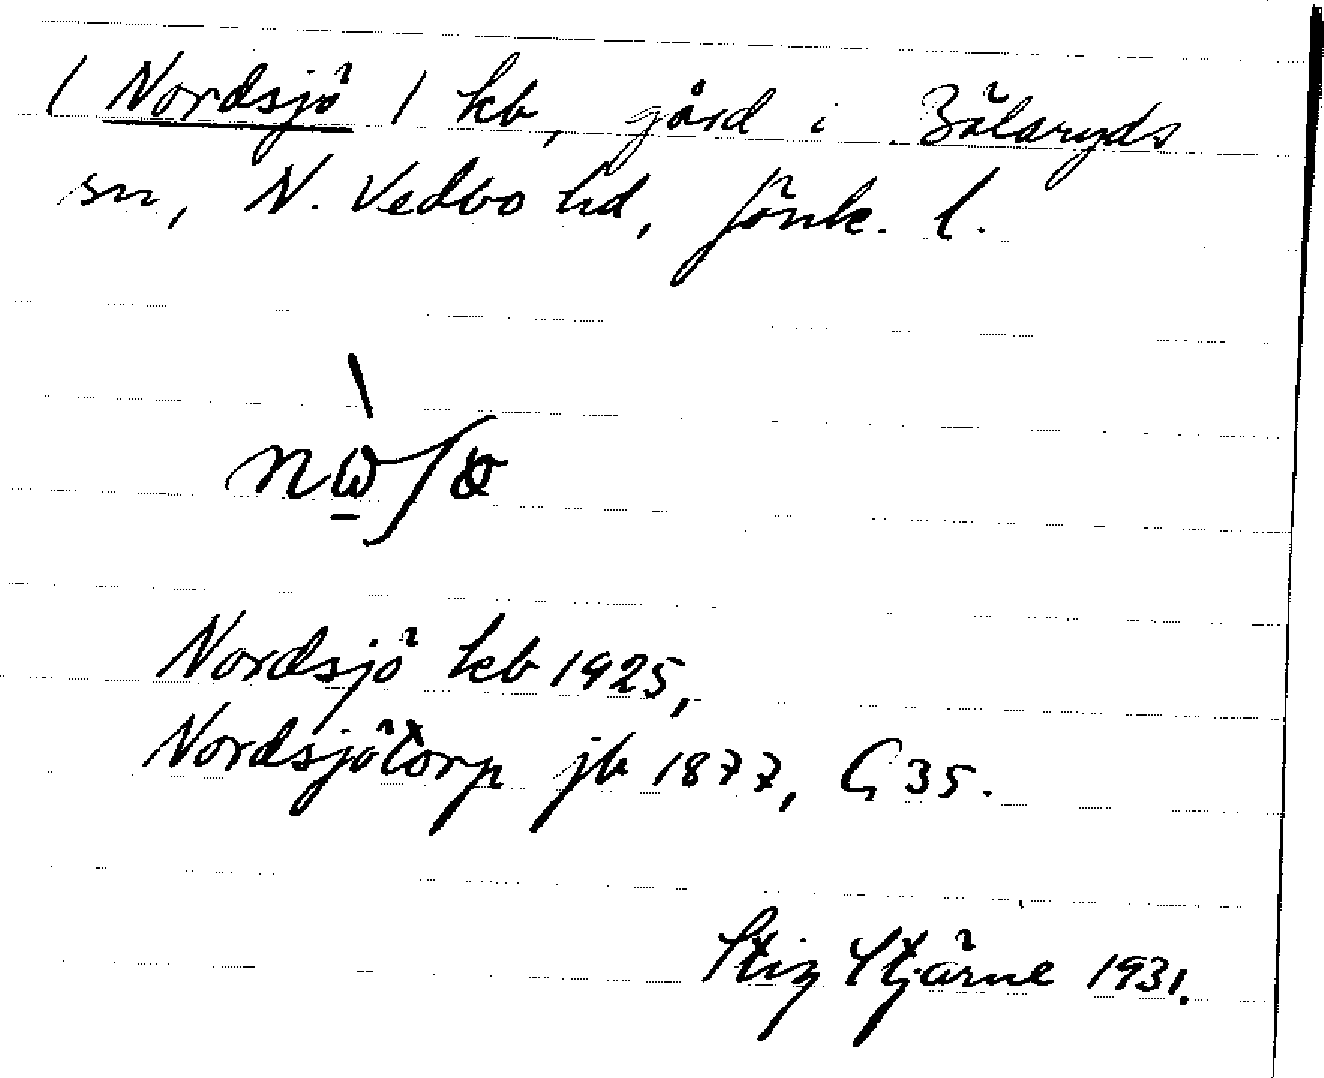 ( Nordsjö ) kb, gård i Bälaryds
sn, N. Vedbo hd, Jönk. l.
Nordsjö kb 1925,
Nordsjötorp jb 1877, G 35.
Stig Stjärne 1931.